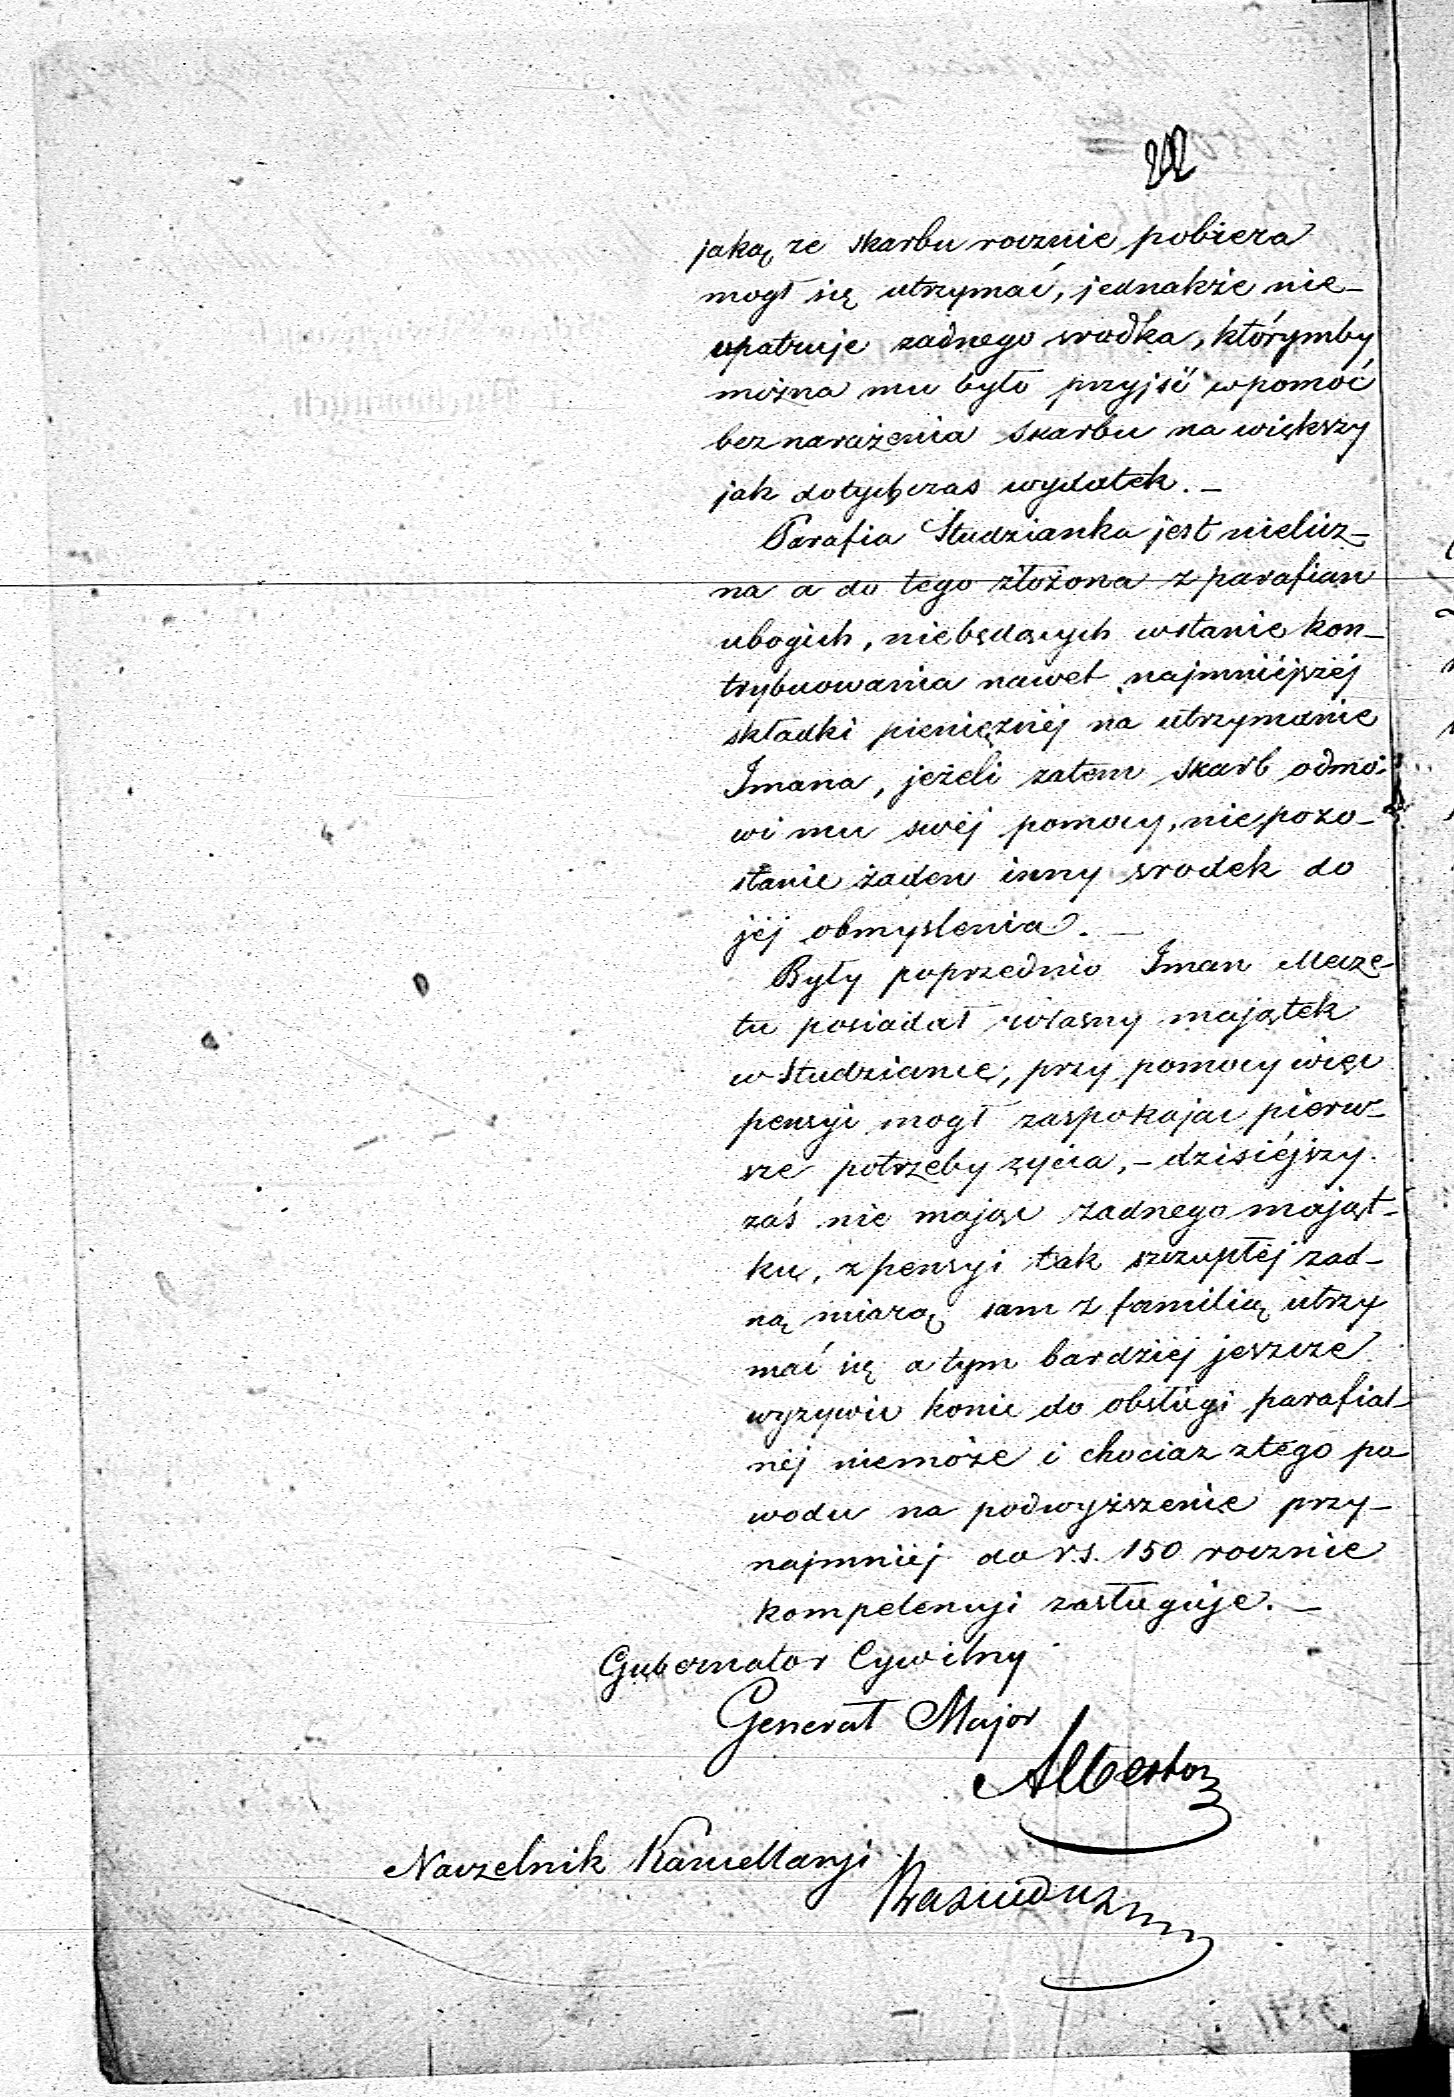 jaką ze skarbu rocznie pobiera
mogł się utrzymać, jednakże nie-
upatruje żadnego srodka, którymby
można mu było przyjść w pomoć
bez narażenia Skarbu na większy
jak dotychczas wydatek. —
Parafia Studzianka jest nielicz-
na a do tego złożona z parafian
ubogich, niebędących wstanie kon-
trybuowania nawet najmniejszéj
składki pieniężnéj na utrzymanie
Imana, jeżeli zatem Skarb odmó-
wi mu swéj pomocy, nie pozo-
stanie żaden inny srodek do
jéj obmyslenia. —
Były poprzednio Iman Mecze-
tu posiadał własny majątek
w Studziance, przy pomocy więc
pensyi mogł zaspokajac pierw-
sze potrzeby życia, — dzisiéjszy
zaś nie mając żadnego mająt-
ku, z pensyi tak szczupłéj żad-
ną miarą sam z familią utrzy
mać się a tym bardziéj jeszcze
wyzywić konie do obsługi parafial-
néj niemoże i chociaz z tego po-
wodu na podwyższenie przy-
najmniéj do r.s. 150 rocznie
kompetencyi zasługuje. —
Gubernator Cywilny
Generał Major
Albertow
Naczelnik Kancellaryi